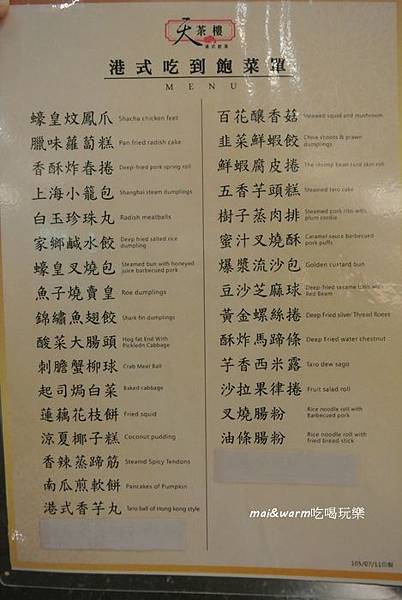 天茶樓
港式飲茶
港式吃到飽菜單
MENU
蠔皇炆鳳爪 Shacha chicken feet
臘味蘿蔔糕 Pan fried radish cake
香酥炸春捲 Deep-fried pork spring roll
上海小籠包 Shanghai steam dumplings
白玉珍珠丸 Radish meatballs
家鄉鹹水餃 Deep fried salted rice dumpling
蠔皇叉燒包 Steamed bun with honeyed juice barbecued pork
魚子燒賣皇 Roe dumplings
錦繡魚翅餃 Shark fin dumplings
酸菜大腸頭 Hog fat End With Pickledn Cabbage
刺膽蟹柳球 Crab Meat Ball
起司焗白菜 Baked cabbage
蓮藕花枝餅 Fried squid
涼夏椰子糕 Coconut pudding
香辣蒸蹄筋 Steamd Spicy Tendons
南瓜煎軟餅 Pancakes of Pumpkin
港式香芋丸 Taro ball of Hong kong style
百花釀香菇 Steamed squid and mushroom
韭菜鮮蝦餃 Chive shoots & prawn dumplings
鮮蝦腐皮捲 The shrimp bean curd skin roll
五香芋頭糕 Steamed taro cake
樹子蒸肉排 Steamed pork ribs with plum cordia
蜜汁叉燒酥 Caramel sauce Barbecued pork puffs
爆漿流沙包 Golden custard bun
豆沙芝麻球 Deep-fried sesame balls with Red Bean
黃金螺絲捲 Deep Fried silver Thread Roees
酥炸馬蹄條 Deep Fried water chestnut
芋香西米露 Taro dew sago
沙拉果律捲 Fruit salad roll
叉燒腸粉 Rice noodle roll with Barbecued pork
油條腸粉 Rice noodle roll with fried bread stick
mai&warm吃喝玩樂
105/07/11印製